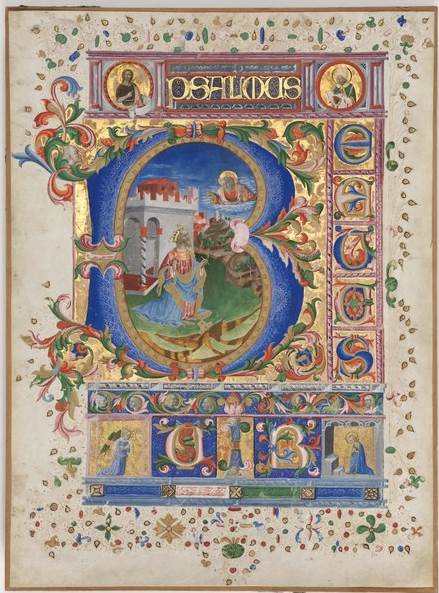 PSALMUS
B
E
A
T
U
S
U I R